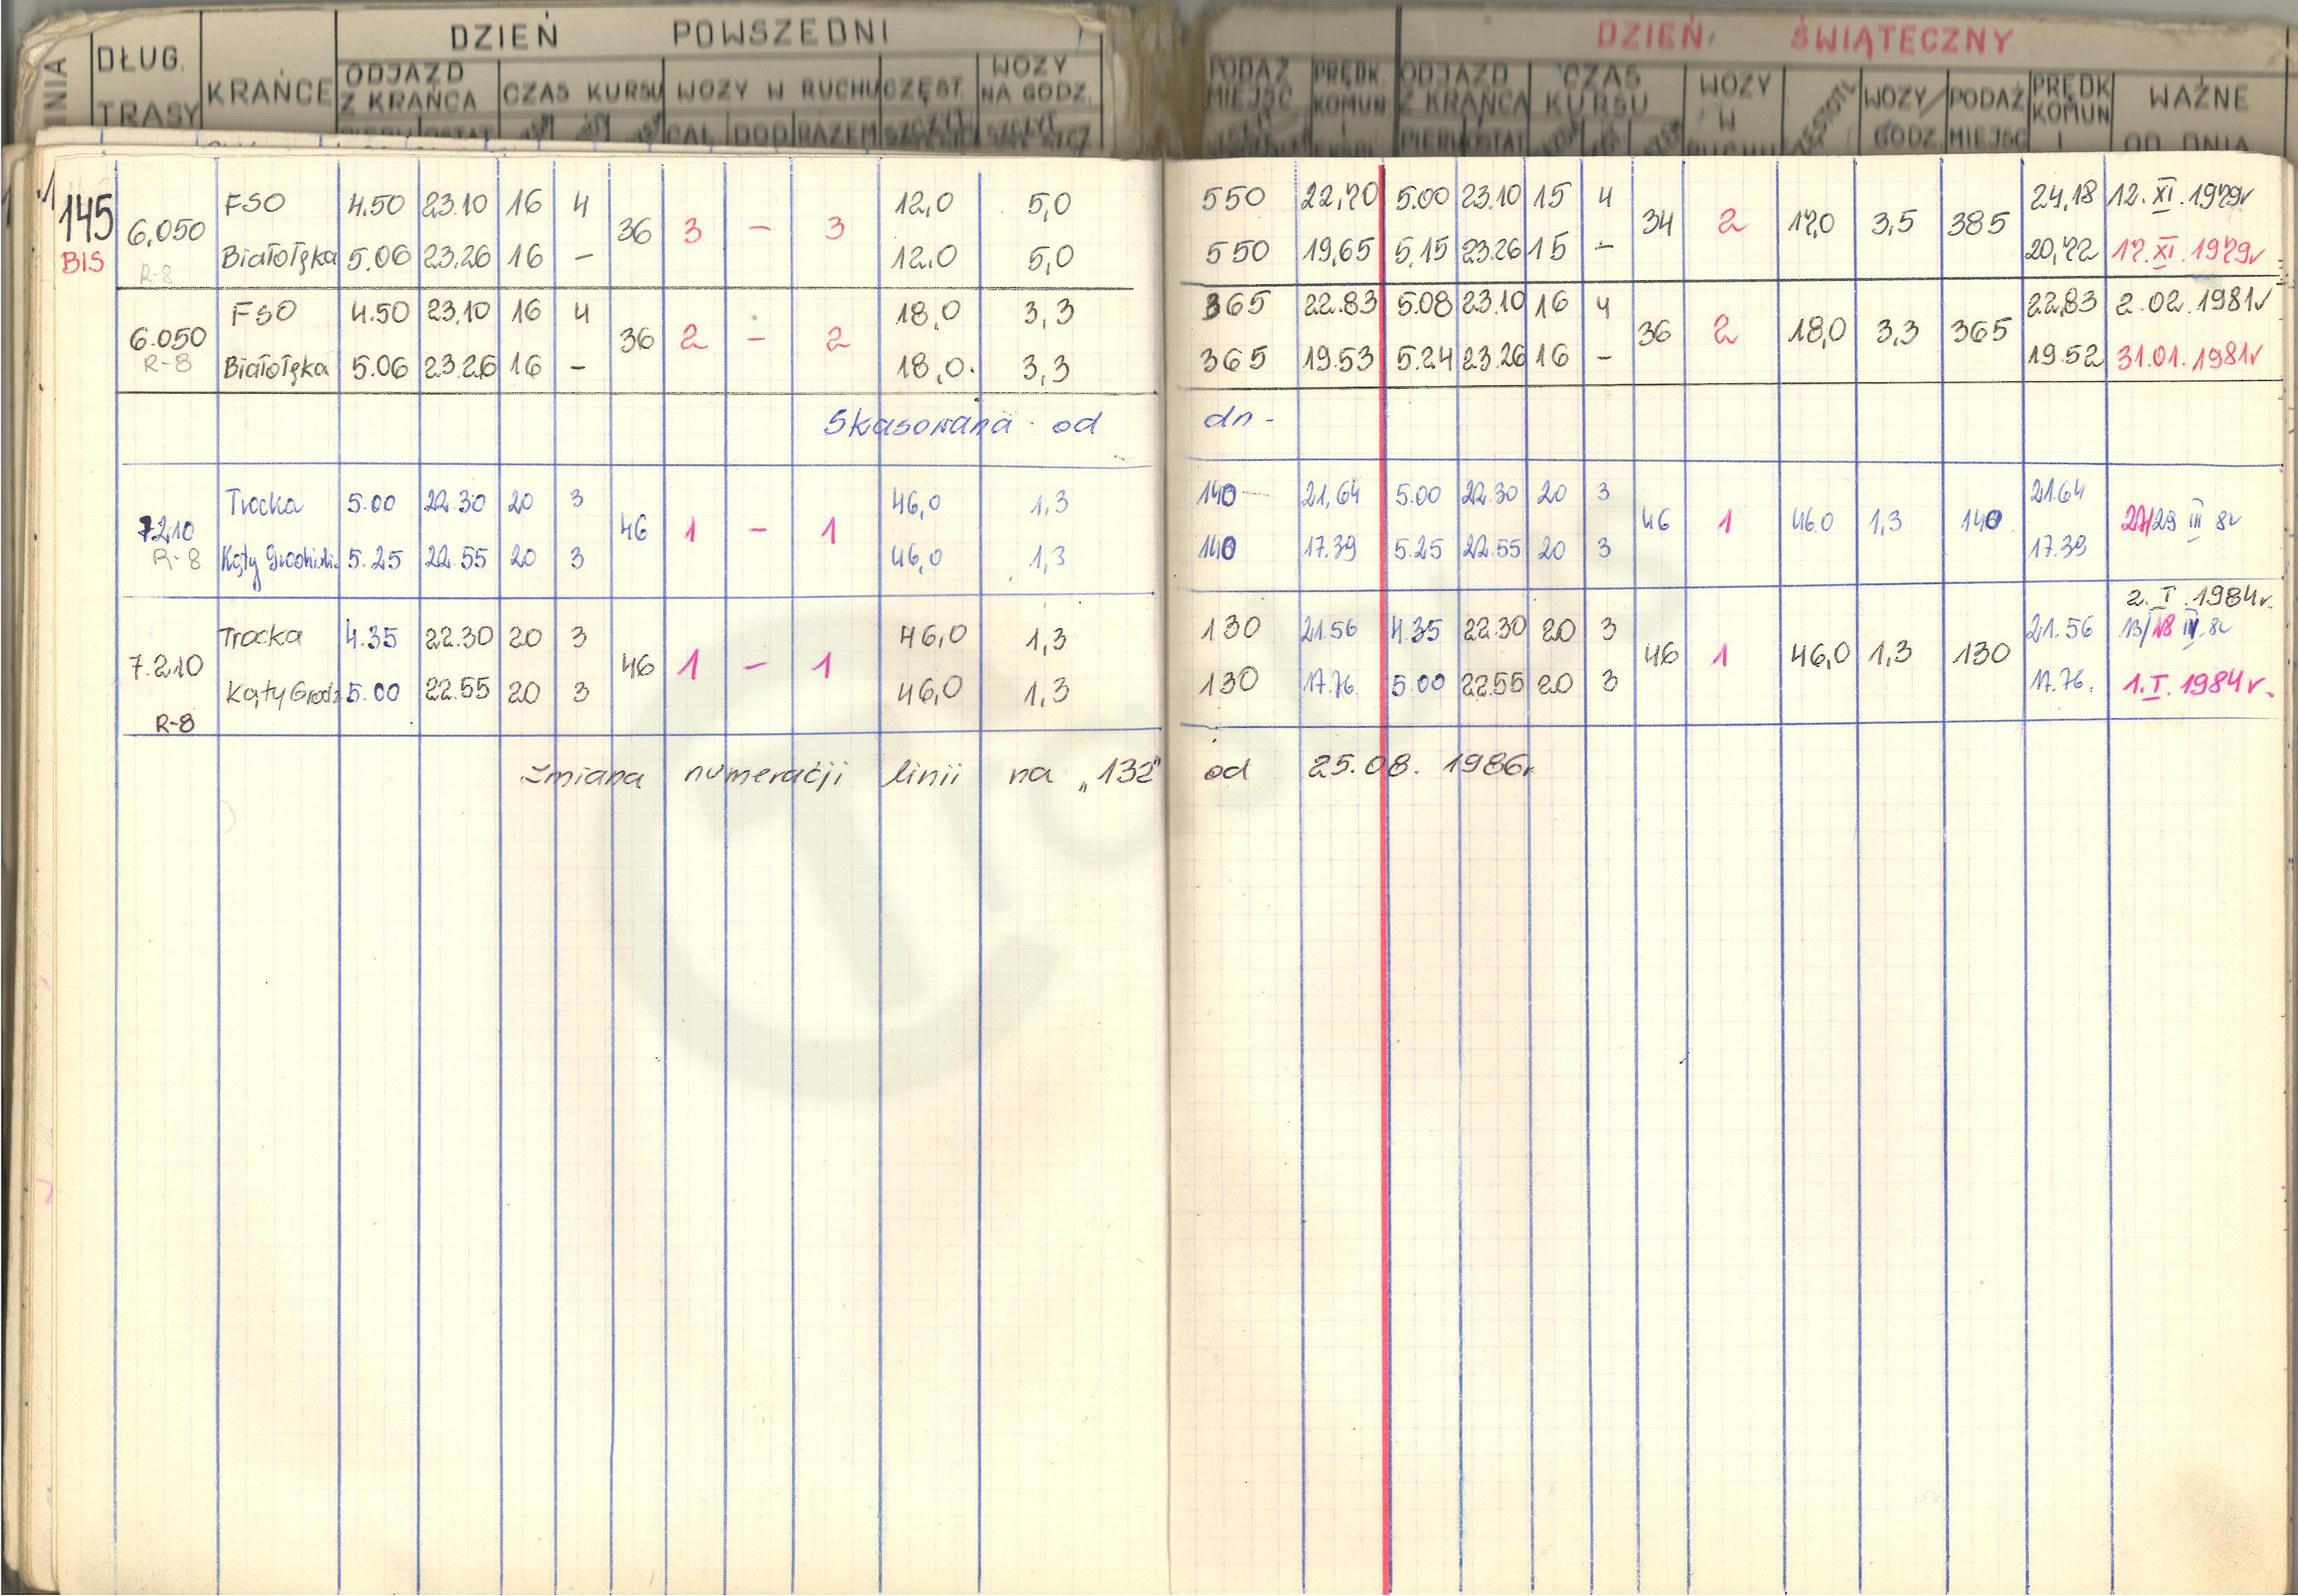 DZIEŃ POWSZEDNI DZIEŃ ŚWIĄTECZNY
DŁUG. TRASY KRAŃCE ODJAZD Z KRAŃCA CZAS KURSU WOZY W RUCHU CZĘST. WOZY NA GODZ. PODAŻ MIEJSC PRĘDK KOMUN I ODJAZD Z KRAŃCA CZAS KURSU WOZY W RUCHU WOZY/GODZ. PODAŻ MIEJSC PRĘDK KOMUN I WAŻNE OD DNIA
CAŁ DOD RAZEM
145 BIS
FSO 4.50 23.10 16 4 12,0 5,0 550 22,70 5.00 23.10 15 4 24,18 12.XI.1979r
6,050 36 3 – 3 34 2 17,0 3,5 385
R-8 Białołęka 5.06 23.26 16 – 12.0 5,0 550 19,65 5.15 23.26 15 – 20,72 17.XI.1979r
FSO 4.50 23.10 16 4 18,0 3,3 365 22.83 5.08 23.10 16 4 22,83 2.02.1981r
6.050 36 2 – 2 36 2 18,0 3,3 365
R-8 Białołęka 5.06 23.26 16 – 18,0. 3,3 365 19.53 5.24 23.26 16 – 19.52 31.01.1981r
Skasowana od dn -
Trocka 5.00 22.30 20 3 46,0 1,3 140 21,64 5.00 22.30 20 3 21.64
7.210 46 1 – 1 46 1 46.0 1,3 140 27/29 III 8
R-8 Kąty 5.25 22.55 20 3 46,0 1,3 140 17.39 5.25 22.55 20 3 17.39
2.I.1984r.
Trocka 4.35 22.30 20 3 46,0 1,3 130 21.56 4.35 22.30 20 3 21.56 13/18
7.210 46 1 – 1 46 1 46,0 1,3 130
Kąty Grodz 5.00 22.55 20 3 46,0 1,3 130 17.76 5.00 22.55 20 3 17.76. 1.I.1984r.
R-8
zmiana numeracji linii na „132" od 25.08.1986r